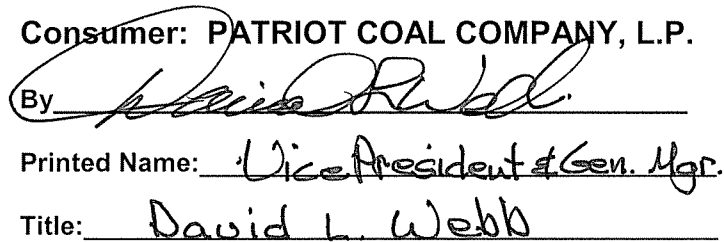 Consumer: PATRIOT COAL COMPANY, L.P.
By David L Webb
Printed Name: Vice President & Gen. Mgr.
Title: David L. Webb